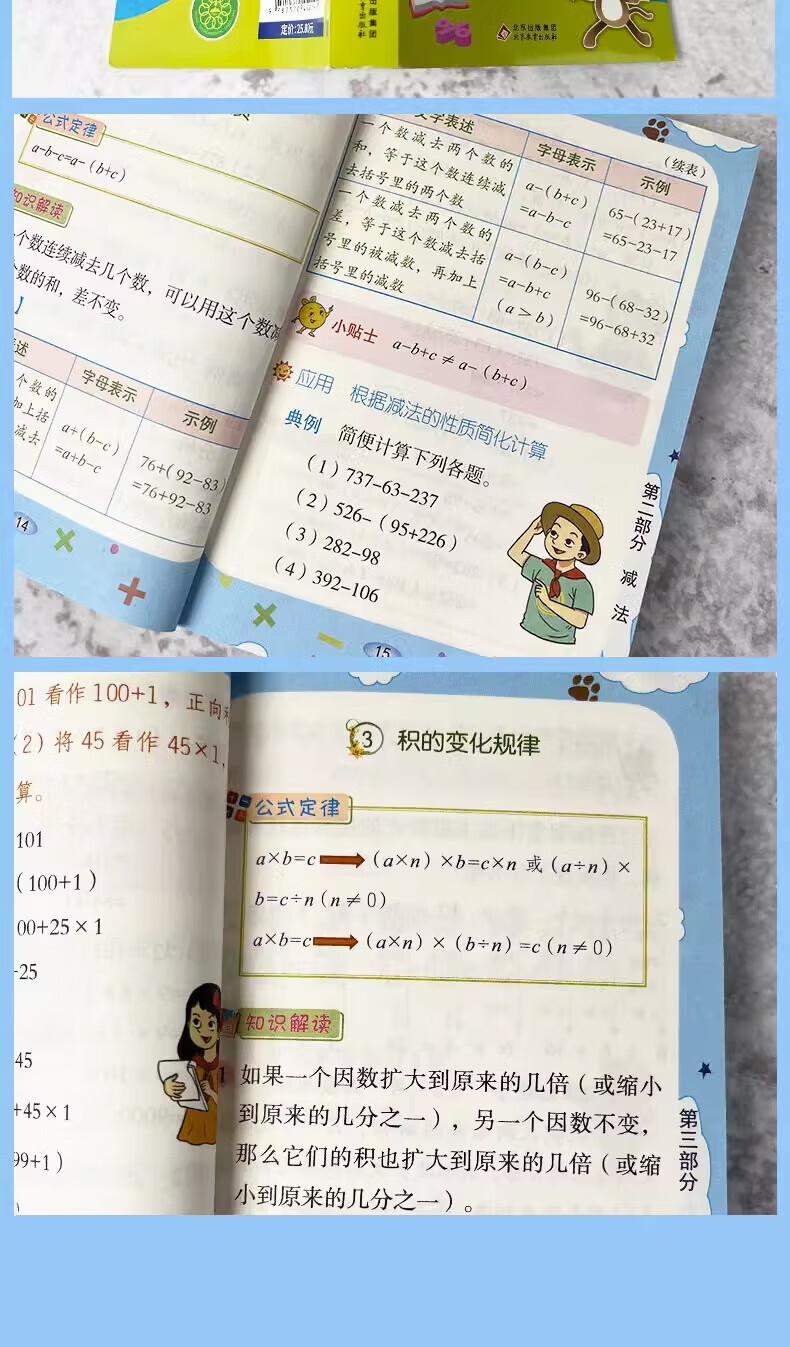 定价:25.80元
北京出版集团
北京教育出版社
公式定律
a-b-c=a-（b+c）
知识解读
个数连续减去几个数，可以用这个数减
数的和，差不变。
】
述
字母表示
示例
个数的
加上括
减去
a+（b-c）
=a+b-c
76+（92-83）
=76+92-83
14
（续表）
文字表述
字母表示
示例
一个数减去两个数的
和，等于这个数连续减
去括号里的两个数
a-（b+c）
=a-b-c
65-（23+17）
=65-23-17
一个数减去两个数的
差，等于这个数减去括
号里的被减数，再加上
括号里的减数
a-（b-c）
=a-b+c
（a＞b）
96-（68-32）
=96-68+32
小贴士 a-b+c ≠ a-（b+c）
应用 根据减法的性质简化计算
典例 简便计算下列各题。
（1）737-63-237
（2）526-（95+226）
（3）282-98
（4）392-106
第二部分 减法
15
01 看作 100+1，正向
（2）将 45 看作 45×1，
算。
101
（100+1）
00+25×1
-25
45
+45×1
99+1）
）
3 积的变化规律
公式定律
a×b=c （a×n）×b=c×n 或（a÷n）×
b=c÷n（n≠0）
a×b=c （a×n）×（b÷n）=c（n≠0）
知识解读
如果一个因数扩大到原来的几倍（或缩小
到原来的几分之一），另一个因数不变，
那么它们的积也扩大到原来的几倍（或缩
小到原来的几分之一）。
第三部分